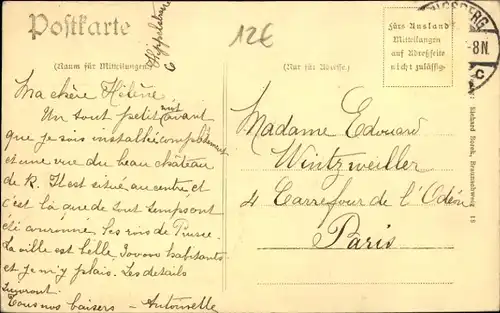 Postkarte
12€
Fürs Ausland
Mitteilungen
auf Adreßseite
nicht zulässig.
8N.
c
(Raum für Mitteilungen)
(Nur für Adresse.)
Ma chère Hélène
Un tout petit mot avant
que je sois installée complètement
et une vue du beau château
de K. Il est situé au centre et
c'est là que de tout temps ont
été couronné les rois de Prusse.
La ville est belle
habitants
et je m'y plais. Les details
suivront.
Tous nos baisers - Antoinette
Madame Edouard
Wintzweiller
4 Carrefour de l'Odéon
Paris